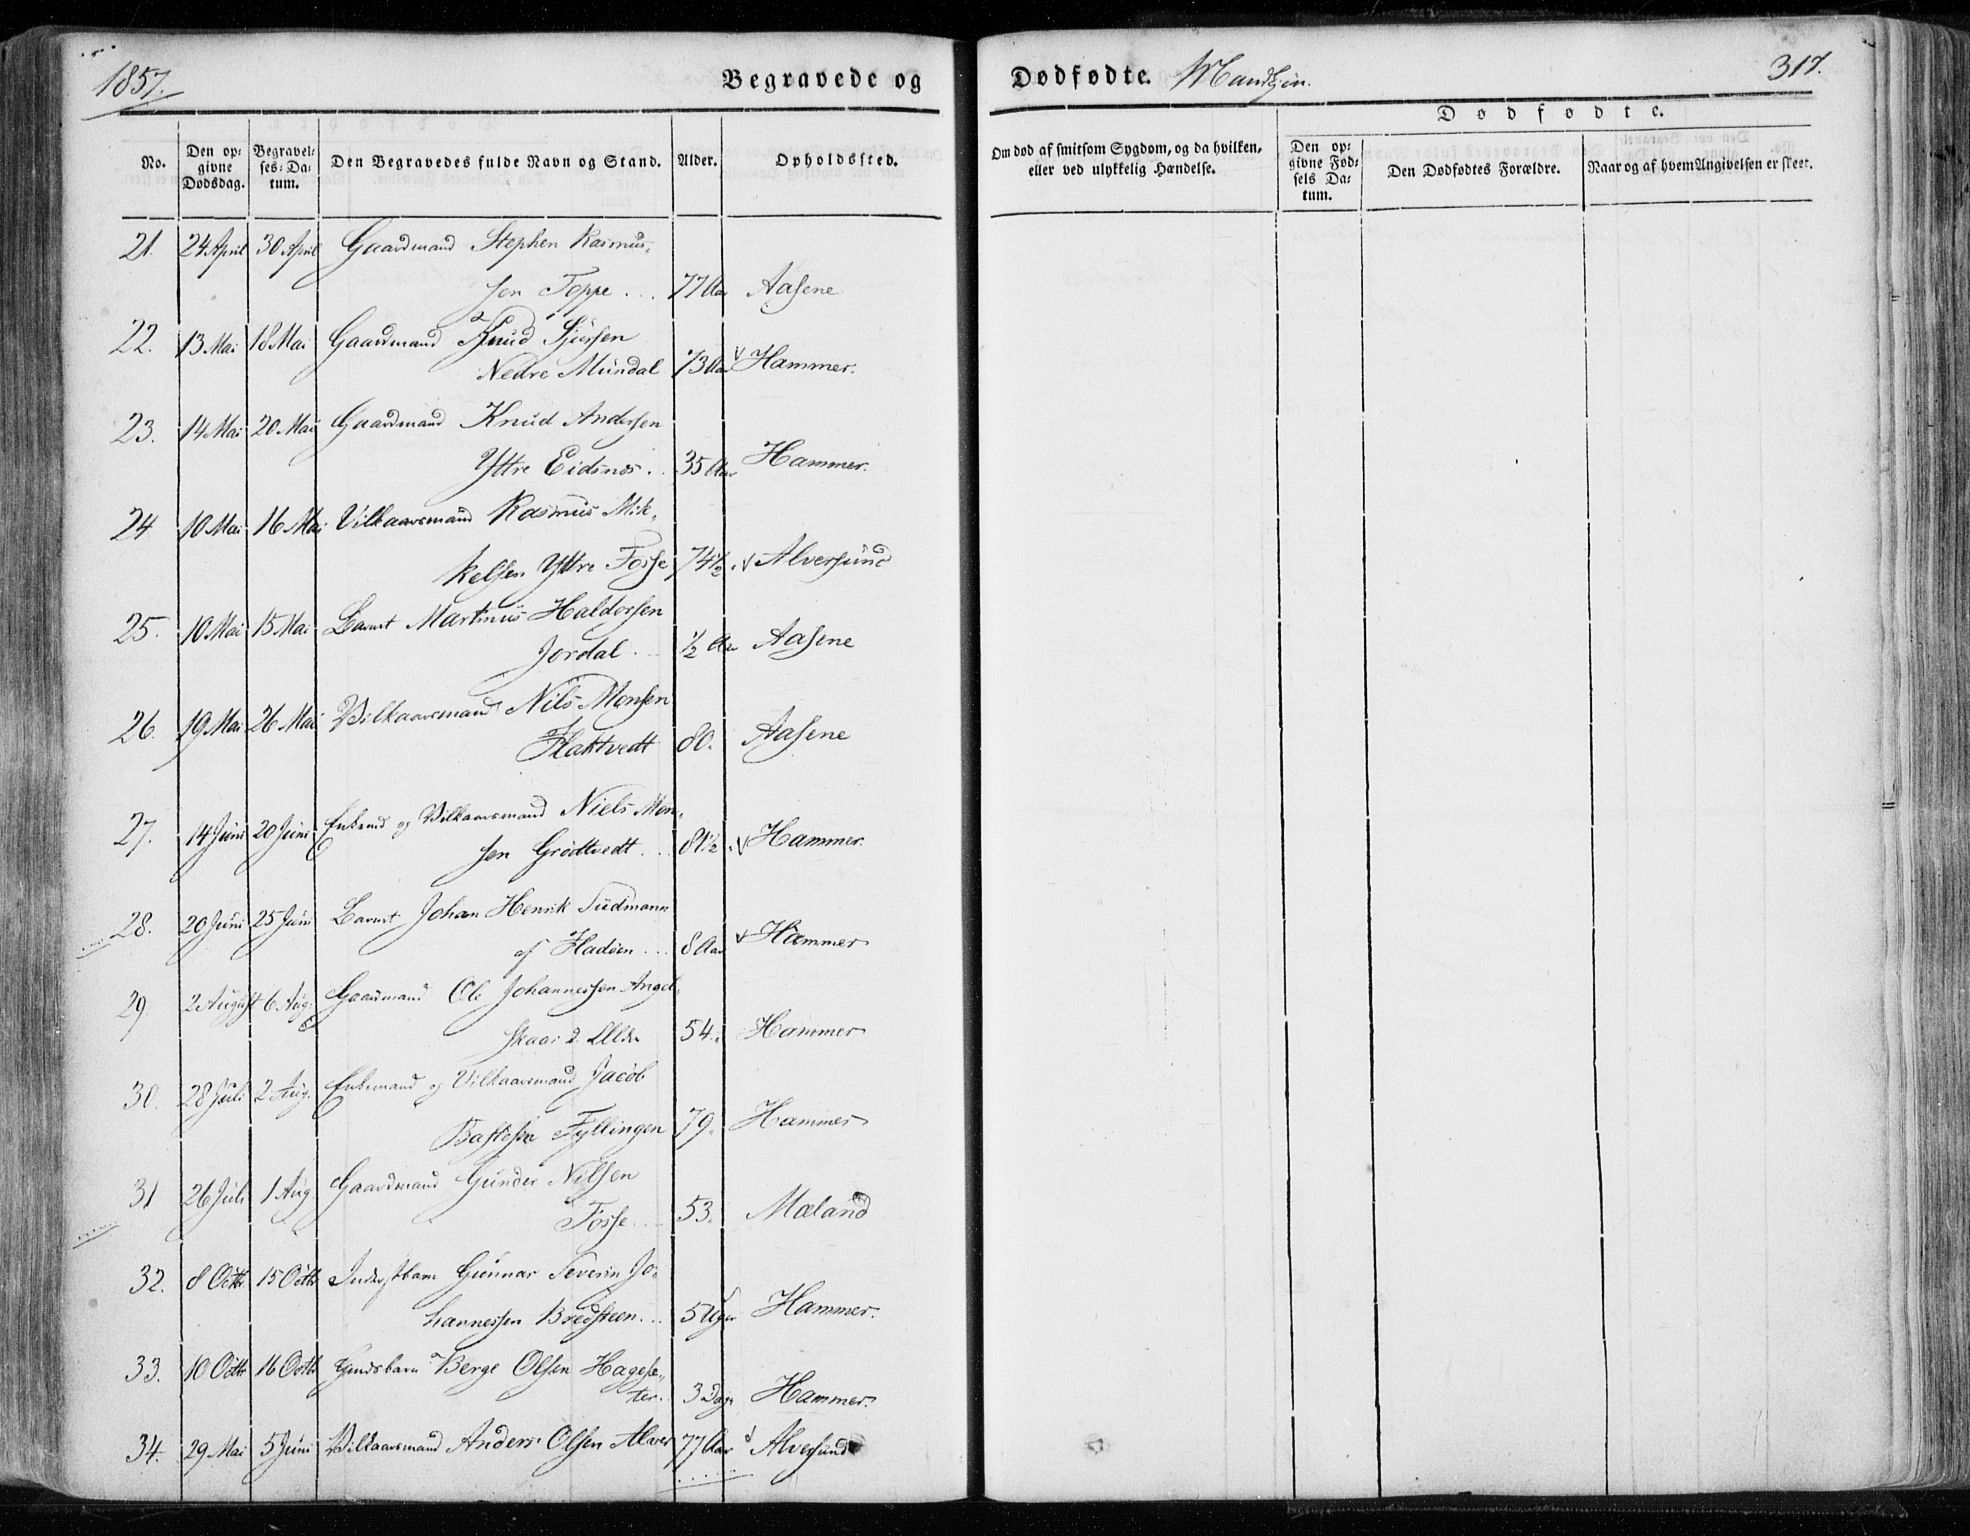 1857.
Begravede og Dødfødte. Mandkjøn.
317.
Dødfødte.
No.
Den op-
givne
Dødsdag.
Begravel-
ses-Da-
tum.
Den Begravedes fulde Navn og Stand.
Alder.
Opholdssted.
Om død af smitsom Sygdom, og da hvilken,
eller ved ulykkelig Hændelse.
Den op-
givne Fød-
sels Da-
tum.
Den Dødfødtes Forældre.
Naar og af hvem Angivelsen er skeet.
21. 24 April 30 April Gaardmand Stephen Rasmus-
sen Toppe... 77 Aar Aasene
22. 13 Mai 18 Mai Gaardmand Knud Sjursen
Nedre Mundal 73 Aar v Hammer.
23. 14 Mai 20 Mai Gaardmand Knud Andersen
Yttre Eidsnes.. 35 Aar Hammer.
24 10 Mai 16 Mai Vilkaarsmand Rasmus Mik-
kelsen Yttre Fosse 74 1/2. v Alversund
25. 10 Mai 15 Mai Barnet Martinus Haldorsen
Jordal... 1/2 Aar Aasene
26. 19 Mai 26 Mai Vilkaarsmand Nils Monsen
Flaktvedt 80. Aasene
27. 14 Juni 20 Juni Enkemd og Vilkaarsmand Niels Mon-
sen Grødtvedt... 81 1/2. v Hammer.
28. 20 Juni 25 Juni Barnet Johan Henrik Sudmann
af Fladøen... 8 Aar v Hammer
29. 2 August 6 Aug. Gaardmand Ole Johannessen Angel-
skaar d. Eldre 54. Hammer
30. 28 Juli 2 Aug. Enkemand og Vilkaarsmand Jacob
Bastesen Fyllingen 79. Hammer
31 26 Juli 1 Aug Gaardmand Gunder Nilsen
Fosse... 53. Mæland
32. 8 Octbr 15 Octbr Inderstbarn Gunnar Severin Jo-
hannessen Bredsteen... 5 Uger Hammer.
33. 10 Octbr 16 Octbr Berge Olsen Hagese-
ter. 3 Dage Hammer.
34. 29 Mai 5 Juni Vilkaarsmand Anders Olsen Alver 77 Aar v Alversund